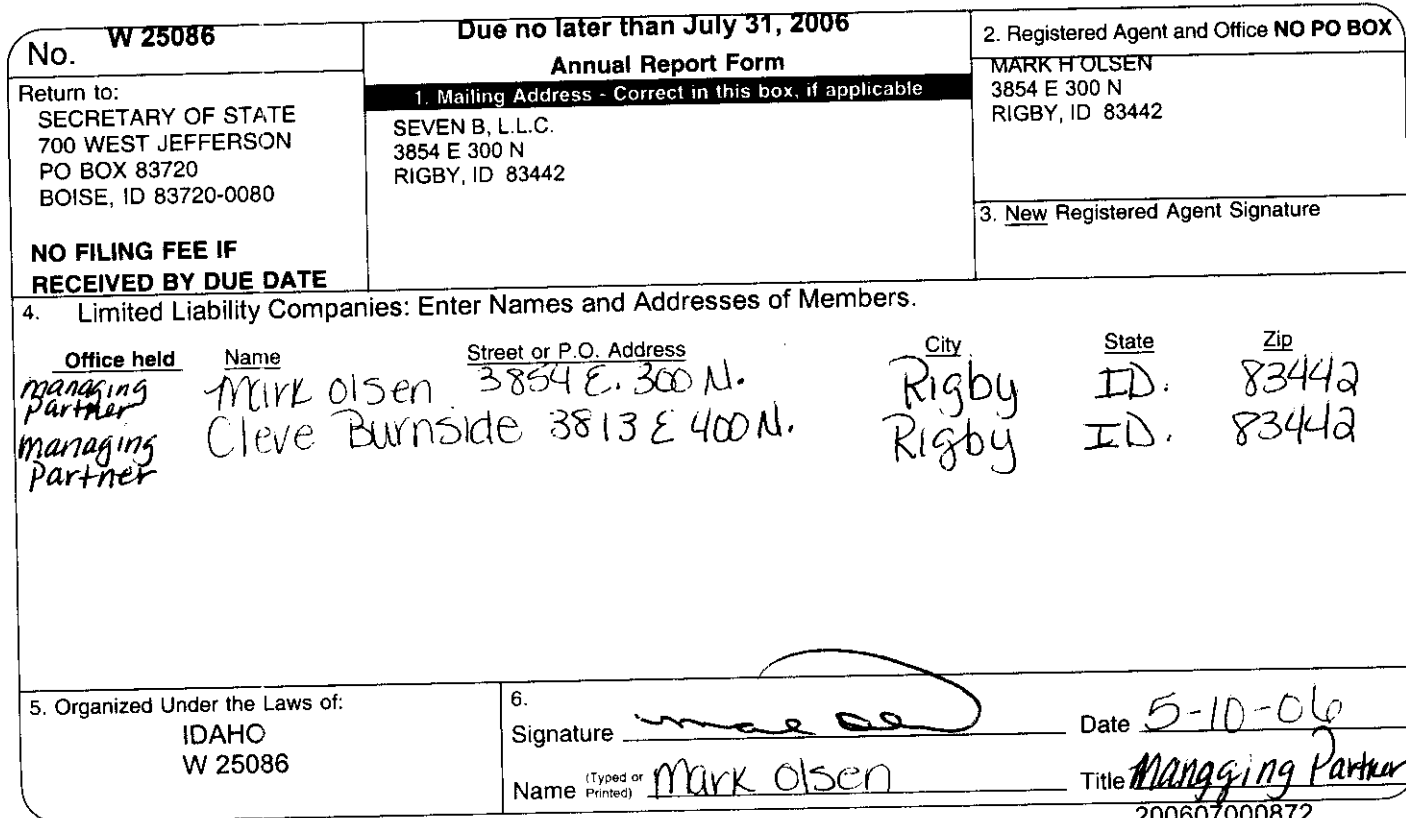 No. W 25086
Return to:
SECRETARY OF STATE
700 WEST JEFFERSON
PO BOX 83720
BOISE, ID 83720-0080
NO FILING FEE IF
RECEIVED BY DUE DATE
Due no later than July 31, 2006
Annual Report Form
1. Mailing Address - Correct in this box, if applicable
SEVEN B, L.L.C.
3854 E 300 N
RIGBY, ID 83442
2. Registered Agent and Office NO PO BOX
MARK H OLSEN
3854 E 300 N
RIGBY, ID 83442
3. New Registered Agent Signature
4. Limited Liability Companies: Enter Names and Addresses of Members.
Office held Name Street or P.O. Address City State Zip
managing Partner Mark Olsen 3854 E. 300 N. Rigby ID. 83442
managing Partner Cleve Burnside 3813 E 400 N. Rigby ID. 83442
5. Organized Under the Laws of:
IDAHO
W 25086
6.
Signature Date 5-10-06
Name (Typed or Printed) Mark Olsen Title Managging Partner
200607000872